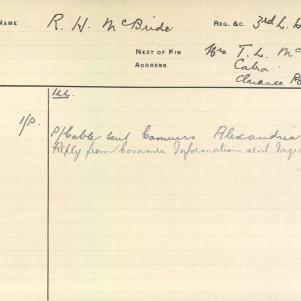 NAME R. H. McBride REG. &C. 3rd L. H
NEXT OF KIN Mrs T. L. Mc
ADDRESS Cabra
Clarence Rd
Ill.
1/P. P/Cable sent Commrs Alexandria
Reply from Commrs Information sent Inqr